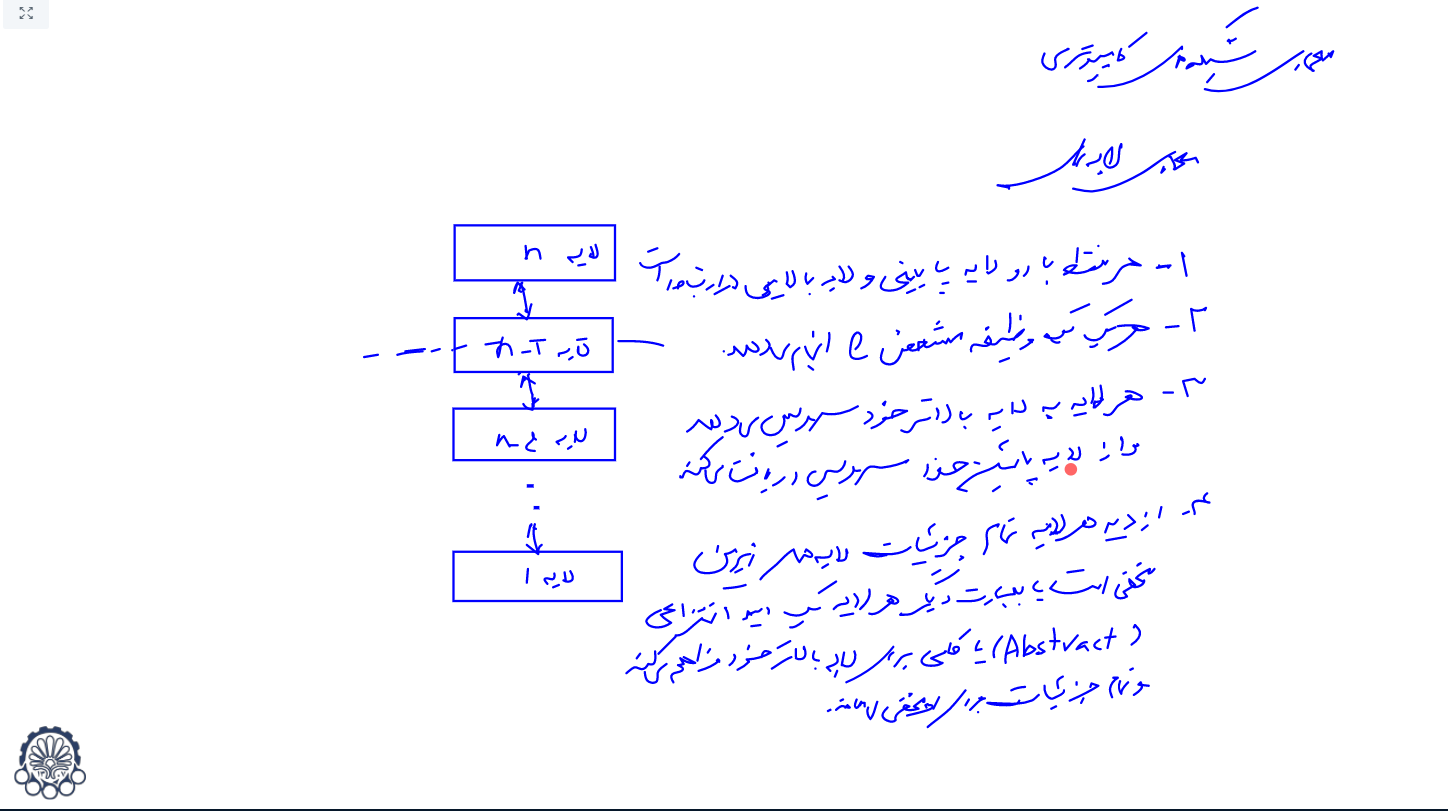 معماری شبکه های کامپیوتری
معماری لایه ای
۱- هر نقطه با دو لایه پایینی و لایه بالایی در ارتباط است
۲- هر یک یک وظیفه مشخص را انجام می دهد.
۳- هر لایه به لایه بالاتر خود سرویس می دهد
و از لایه پائینی خود سرویس دریافت می کند
۴- از دید هر لایه تمام جزئیات لایه های زیرین
مخفی است یا بعبارت دیگر هر لایه یک دید انتزاعی
(Abstract) یا کلی برای لایه بالاتر خود فراهم می کند
و تمام جزئیات برای او مخفی
لایه n
لایه n-1
لایه n-2
لایه ۱